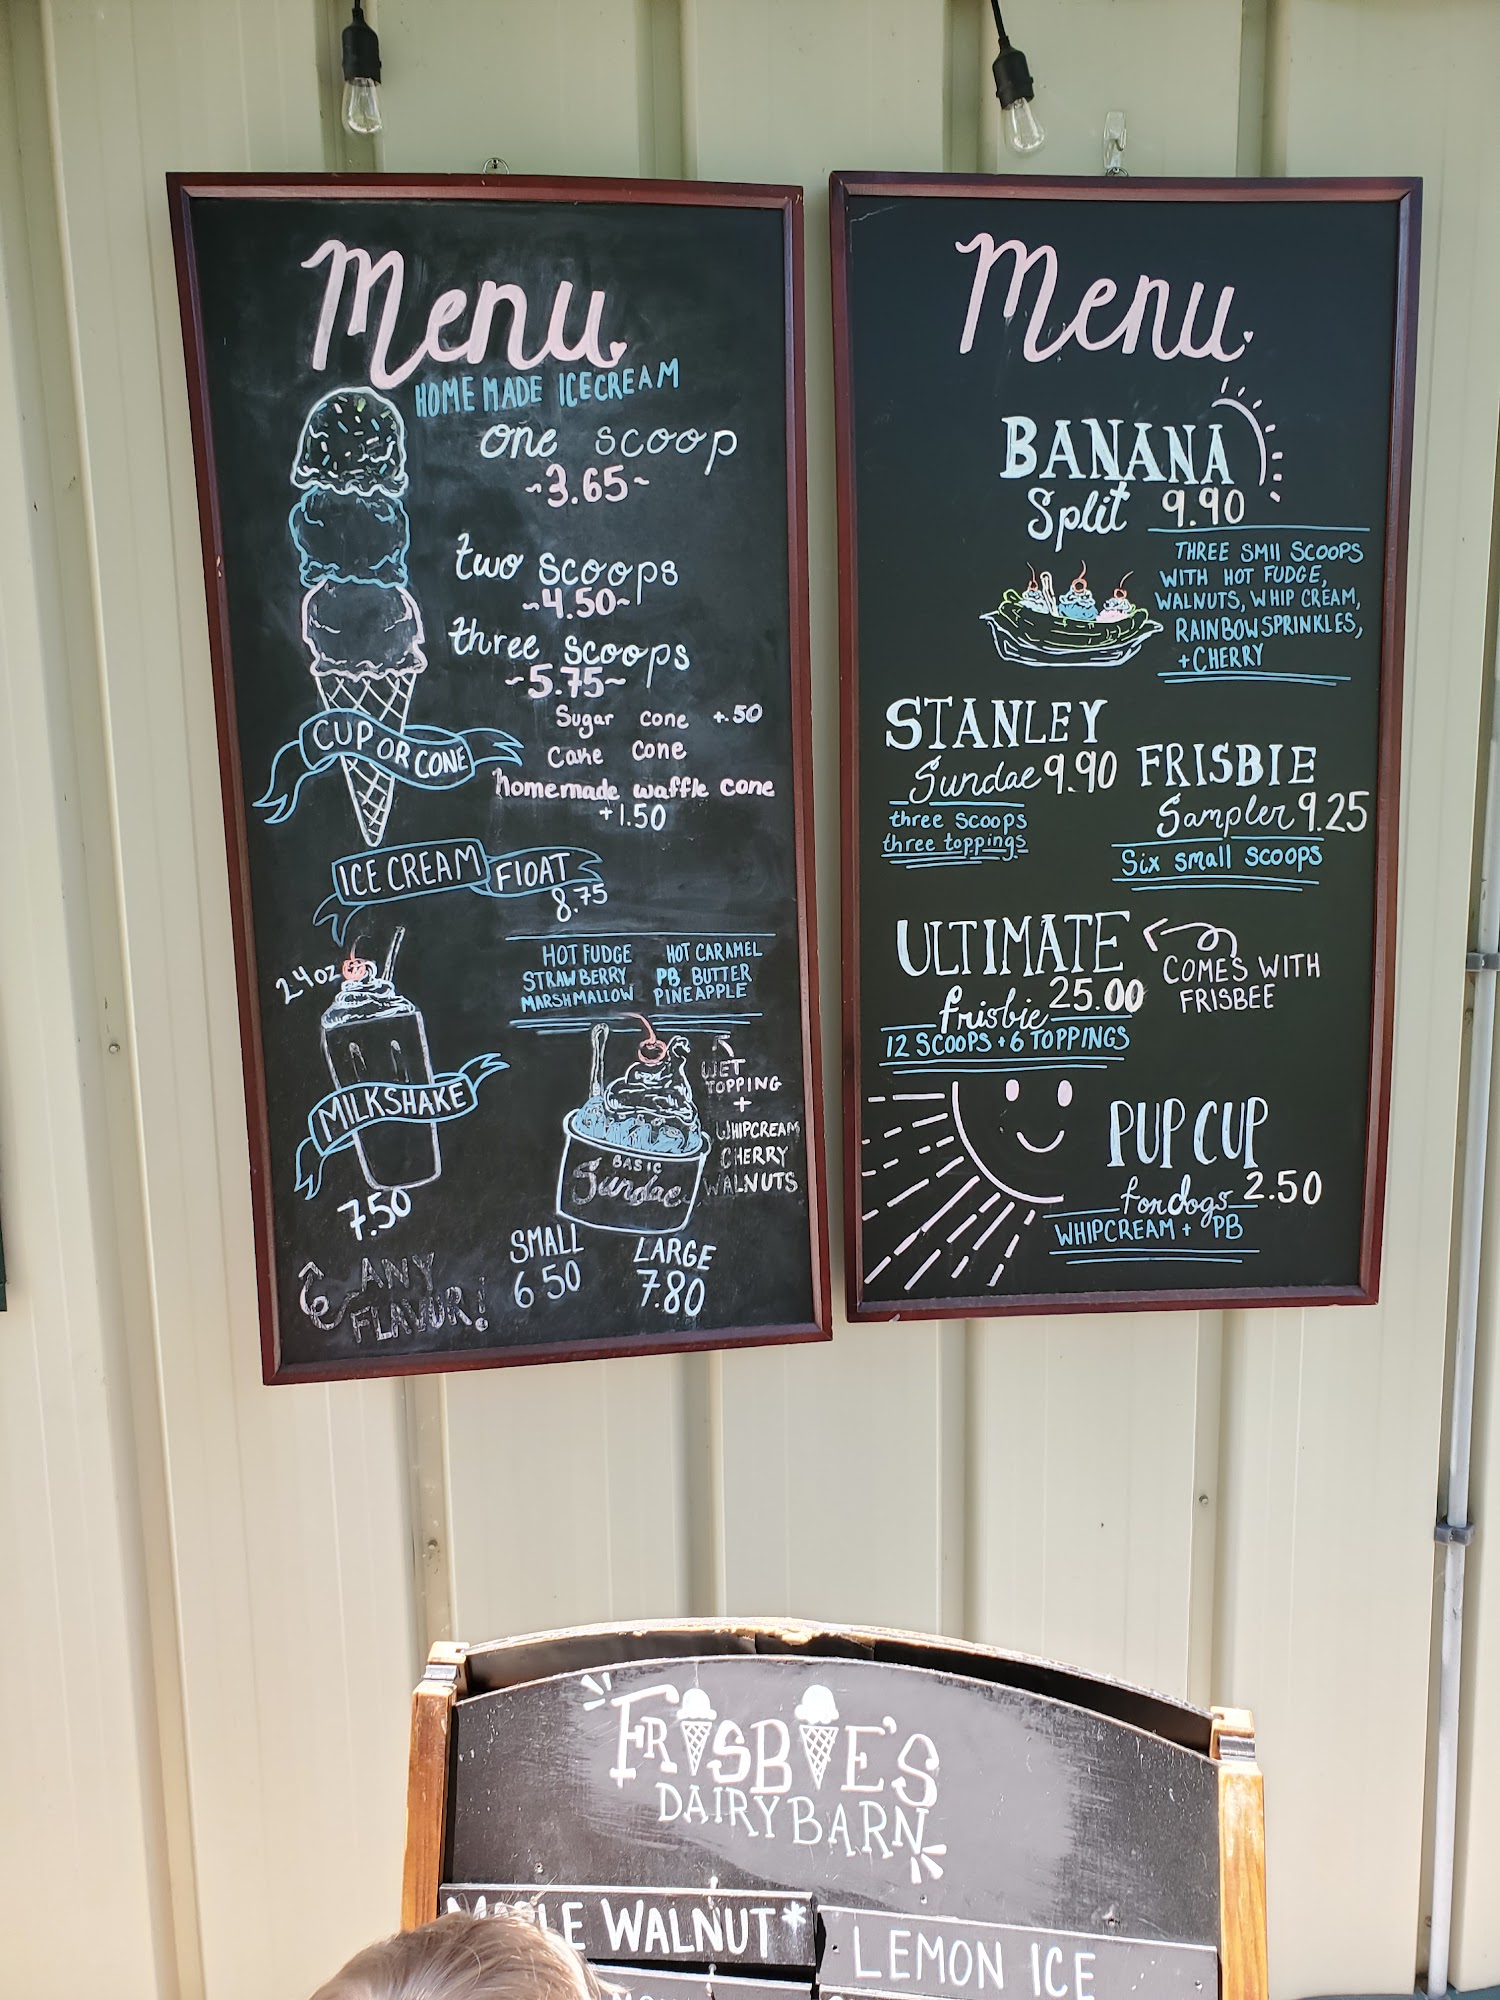 Menu
HOMEMADE ICECREAM
one scoop
~3.65~
two scoops
~4.50~
three scoops
~5.75~
Sugar cone +.50
Cake cone
homemade waffle cone
+1.50
CUP OR CONE
ICE CREAM FLOAT
8.75
24oz
MILKSHAKE
7.50
ANY
FLAVOR!
HOT FUDGE HOT CARAMEL
STRAWBERRY PB BUTTER
MARSHMALLOW PINEAPPLE
WET
TOPPING
+
WHIPCREAM
CHERRY
WALNUTS
BASIC
Sundae
SMALL LARGE
6.50 7.80
Menu
BANANA
Split 9.90
THREE SMll SCOOPS
WITH HOT FUDGE,
WALNUTS, WHIP CREAM,
RAINBOW SPRINKLES,
+ CHERRY
STANLEY
Sundae 9.90
three scoops
three toppings
FRISBIE
Sampler 9.25
Six small scoops
ULTIMATE
frisbie 25.00
12 SCOOPS + 6 TOPPINGS
COMES WITH
FRISBEE
PUP CUP
for dogs 2.50
WHIPCREAM + PB
FRISBIE'S
DAIRY BARN
MAPLE WALNUT*
LEMON ICE